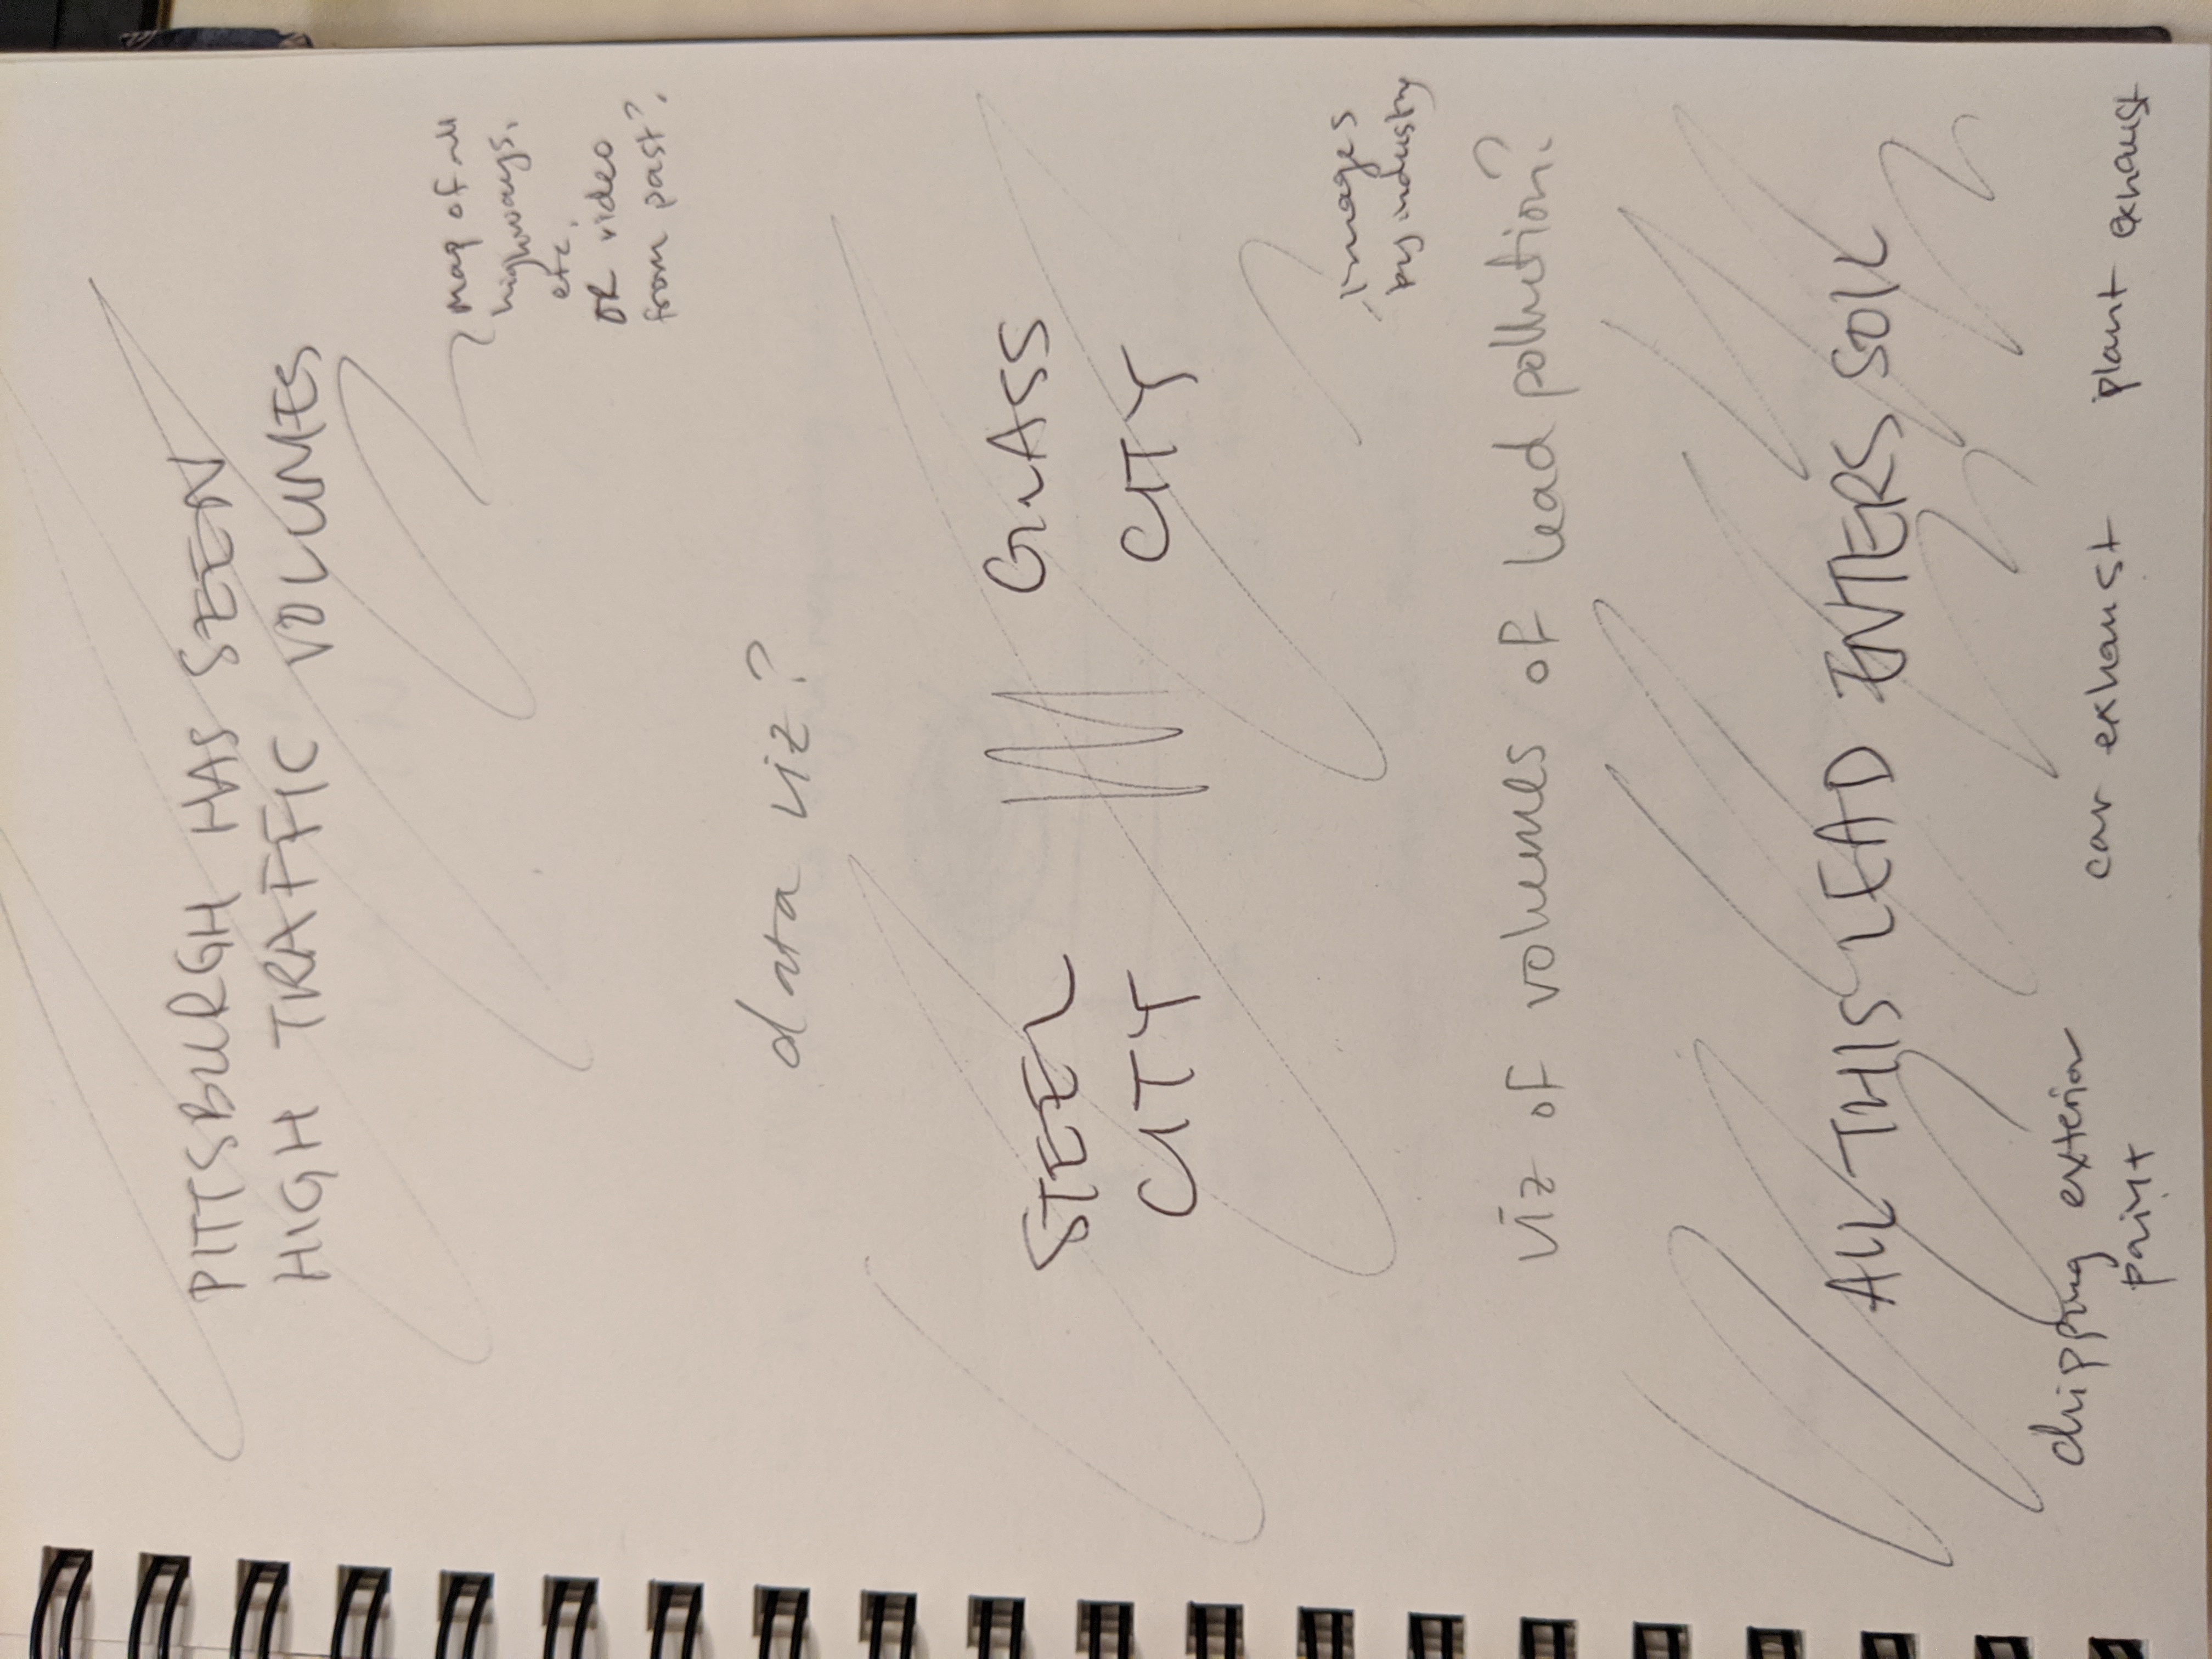 PITTSBURGH HAS SEEN
HIGH TRAFFIC VOLUMES
Map of all
highways,
etc.
OR video
from past?
data viz?
STEEL
CITY
GLASS
CITY
images
by industry
viz of volumes of lead pollution?
ALL THIS LEAD ENTERS SOIL
chipping exterior
paint
car exhaust
plant exhaust